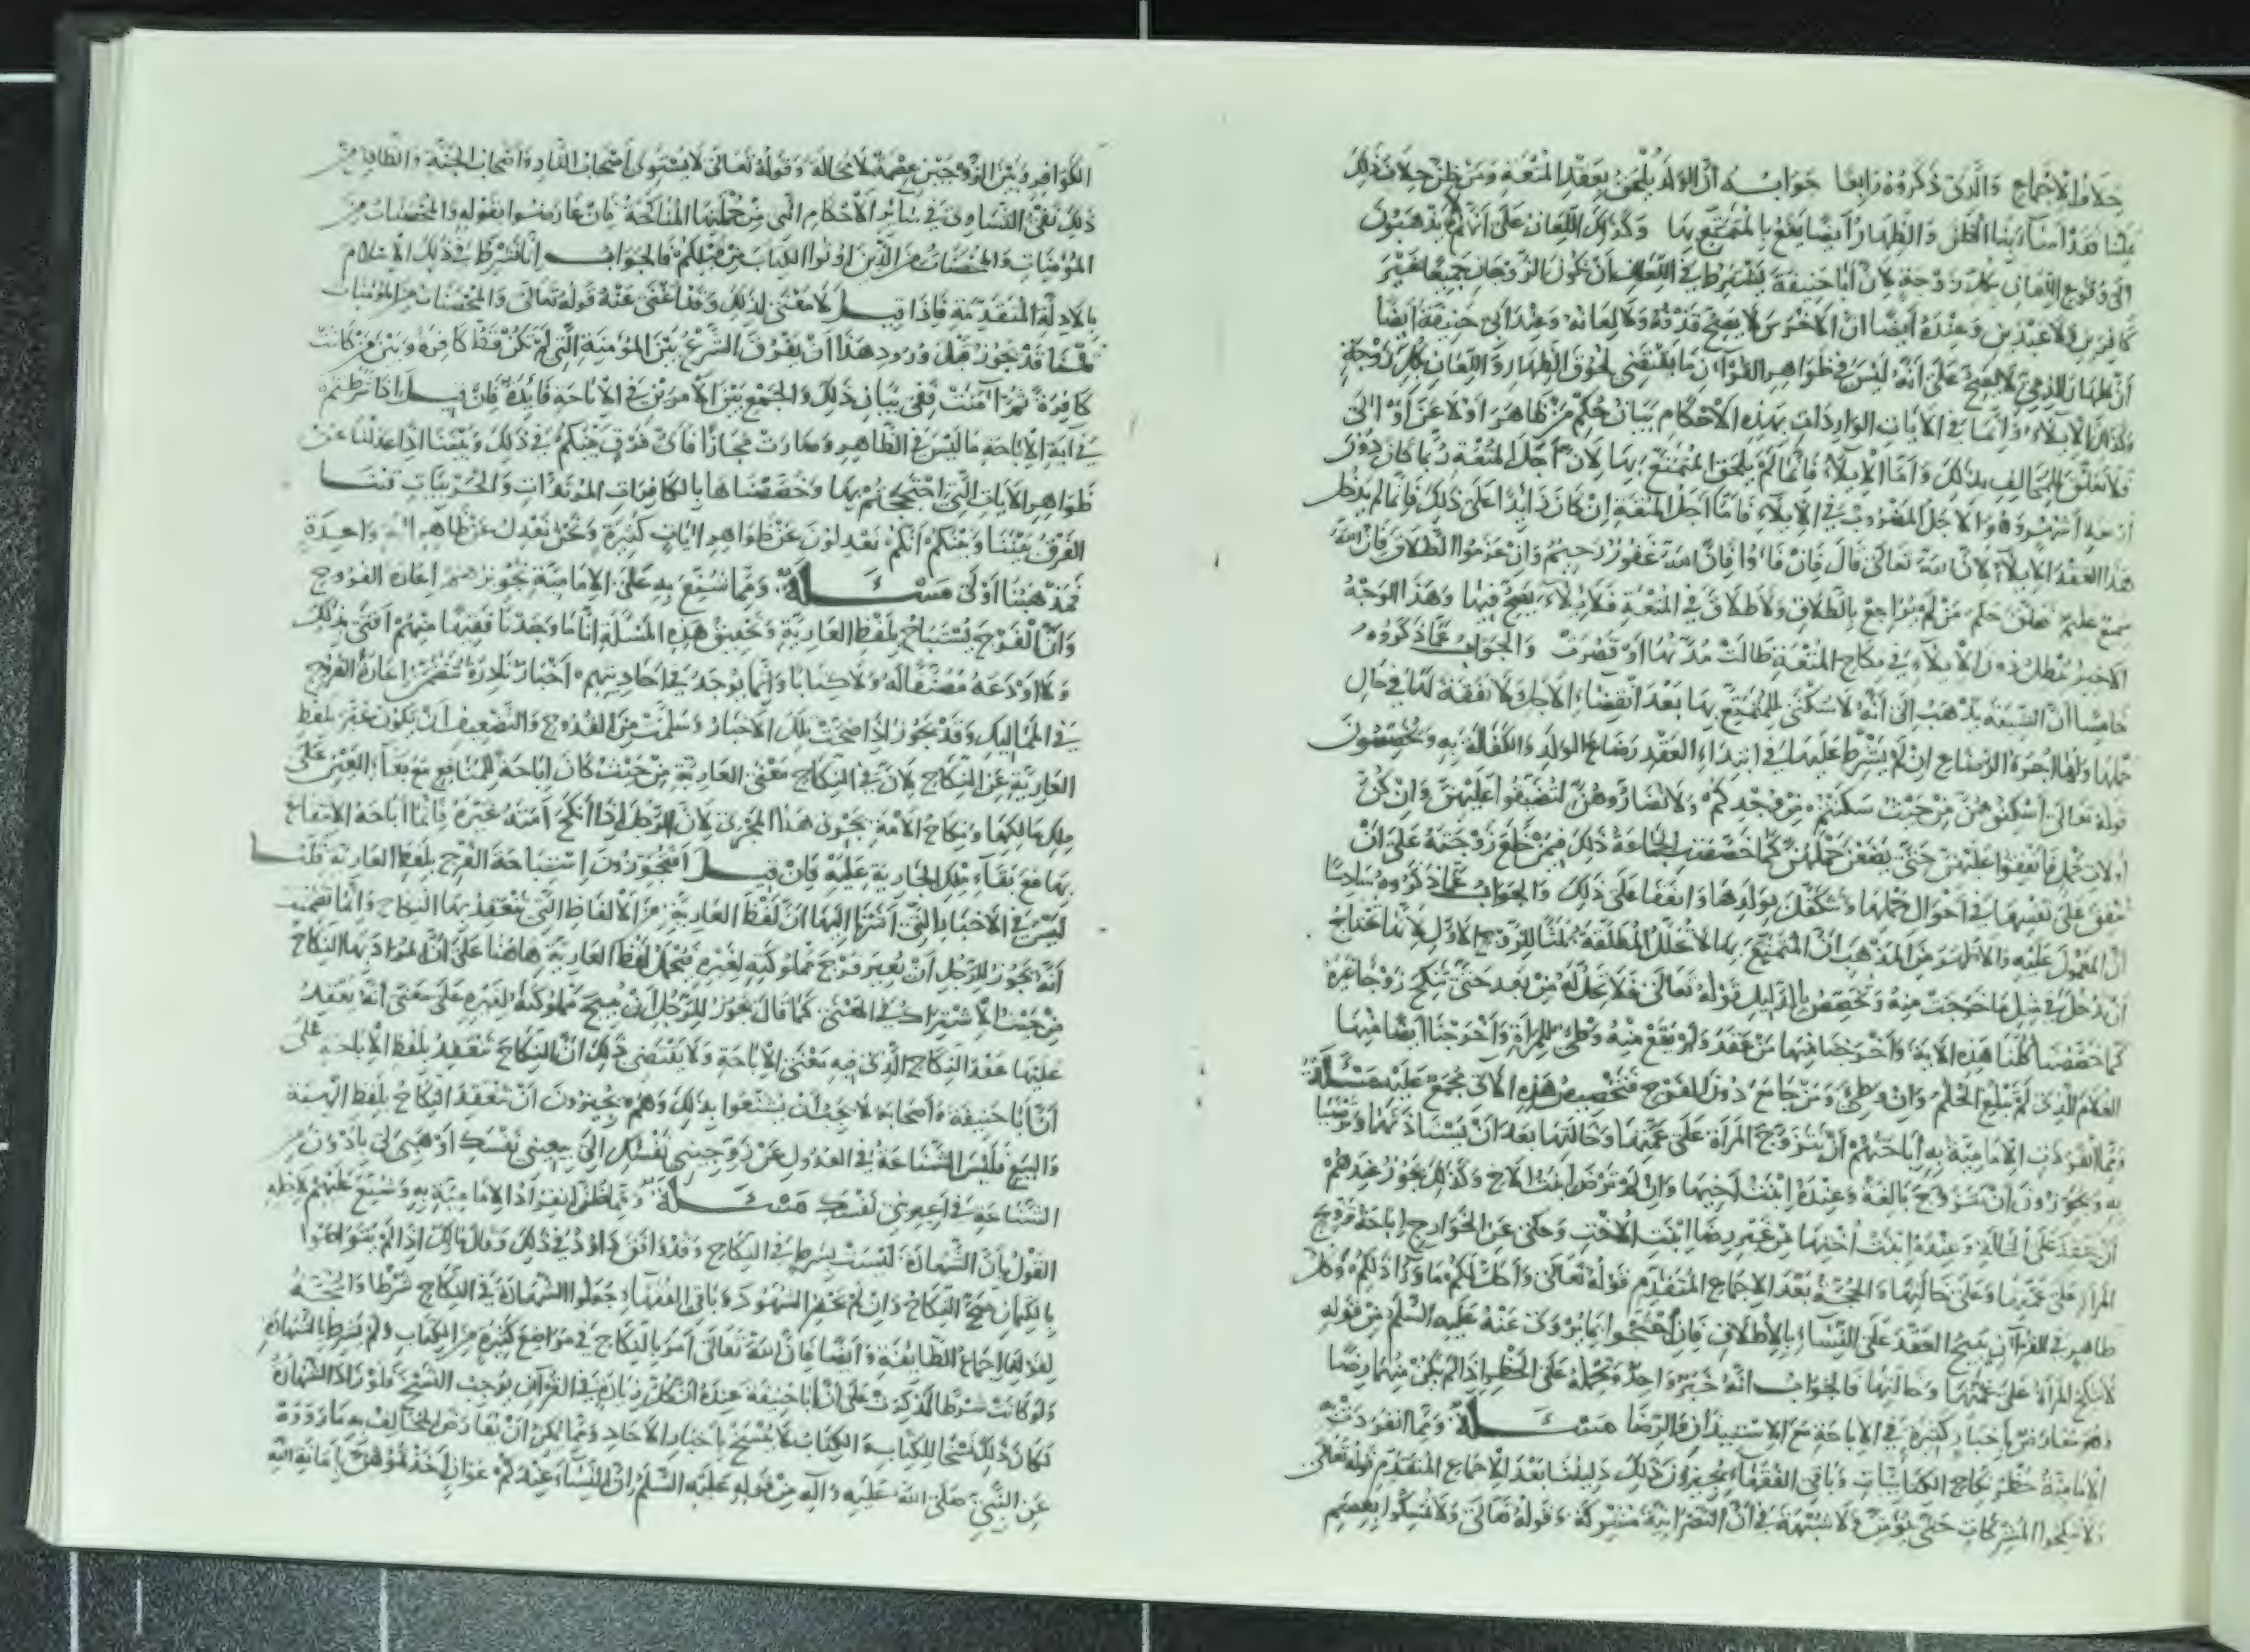 خلاف الاجماع والذي ذكروه رابعا جوابه أن الولد يلحق بعقد المتعة ومن ظن خلاف ذلك
علينا فقد أساء بنا الظن والظهار أيضا يقع بالمتمتع بها وكذلك اللعان على أنهم لا يذهبون
الى وقوع اللعان بكل زوجة لأن أبا حنيفة يشترط في اللعان أن يكون الزوجان جميعا غير
كافرين ولا عبدين وعنده أيضا ان الأخرس لا يصح قذفه ولا لعانه وعند أبي حنيفة أيضا
أن ظهار الذمي لا يصح على أنه ليس في ظواهر القرآن ما يقتضي لحوق الظهار واللعان بكل زوجة
وكذلك الإيلاء وإنما في الآيات الواردات بهذه الأحكام بيان حكم من ظاهر أو لاعن أو آلى
فلا تعلق للمخالف بذلك وأما الإيلاء فإنما لم يلحق المتمتع بها لأن أجل المتعة ربما كان دون
أربعة أشهر وهو الأجل المضروب في الإيلاء فأما أجل المتعة إن كان زائدا على ذلك فإنما لم يدخل
هذا العقد الإيلاء لأن الله تعالى قال فإن فاؤا فإن الله غفور رحيم وإن عزموا الطلاق فإن الله
سميع عليم فعلق حكم من لم يراجع بالطلاق ولا طلاق في المتعة فلا إيلاء يصح فيها وهذا الوجه
الأخير يبطل دخول الإيلاء في نكاح المتعة طالت مدتها أو قصرت والجواب عما ذكروه
خامسا أن الشيعة يذهب إلى أنه لا سكنى للمتمتع بها بعد انقضاء الأجل ولا نفقة لها في حال
حملها ولها أجرة الرضاع إن لم يشترط عليها في ابتداء العقد رضاع الولد والكفالة به ويخصصون
قوله تعالى أسكنوهن من حيث سكنتم من وجدكم ولا تضاروهن لتضيقوا عليهن وإن كن
أولات حمل فأنفقوا عليهن حتى يضعن حملهن كما خصصت الجماعة ذلك فيمن خلع زوجته على أن
تنفق على نفسها في أحوال حملها وتتكفل بولدها واتفقا على ذلك والجواب عما ذكروه سادسا
أن المعول عليه والأظهر من المذهب أن المتمتع بها لا تحلل المطلقة ثلاثا للزوج الأول لأنها تحتاج
أن تدخل في مثل ما خرجت منه ويخصص بالدليل قوله تعالى فلا تحل له من بعد حتى تنكح زوجا غيره
كما خصصنا كلنا هذه الآية وأخرجنا منها من عقد ولم يقع منه وطئ للمرأة وأخرجنا أيضا منها
الغلام الذي لم يبلغ الحلم وإن وطئ ومن جامع دون الفرج فتخصيص هذه الآي مجمع عليه مسئلة
ومما انفردت الإمامية به إباحتهم أن يتزوج المرأة على عمتها وخالتها بعد أن يستأذنهما وترضيا
به ويجوزون أن يتزوج بالعمة وعنده بنت أخيها وإن لم ترض بنت الأخ وكذلك يجوز عندهم
أن يعقد على الخالة وعنده بنت أختها من غير رضا ابنة الأخت وحكي عن الخوارج إباحة تزويج
المرأة على عمتها وعلى خالتها والحجة بعد الإجماع المتقدم قوله تعالى وأحل لكم ما وراء ذلكم وكل
ظاهر في القرآن يبيح العقد على النساء بالإطلاق فإن احتجوا بما يروى عنه عليه السلم من قوله
لا تنكح المرأة على عمتها وخالتها فالجواب أنه خبر واحد ونحمله على الحظر إذا لم يكن منهما رضا
وهو معارض بأخبار كثيرة في الإباحة مع الاستيذان والرضا مسئلة ومما انفردت به
الإمامية حظر نكاح الكتابيات وباقي الفقهاء يجيزون ذلك دليلنا بعد الإجماع المتقدم قوله تعالى
ولا تنكحوا المشركات حتى يؤمن ولا شبهة في أن النصرانية مشركة وقوله تعالى ولا تمسكوا بعصم
الكوافر وبين الزوجين عصمة لا محالة وقوله تعالى لا يستوي أصحاب النار وأصحاب الجنة والظاهر من
ذلك نفي التساوي في سائر الأحكام التي من جملتها المناكحة فإن عارضوا بقوله والمحصنات من
المؤمنات والمحصنات من الذين أوتوا الكتاب من قبلكم فالجواب إنا نشترط في ذلك الإسلام
بالأدلة المتقدمة فإذا قيل لا معنى لذلك وقد أغنى عنه قوله تعالى والمحصنات من المؤمنات
قلنا قد يجوز قبل ورود هذا أن يفرق الشرع بين المؤمنة التي لم تكن قط كافرة وبين من كانت
كافرة ثم آمنت ففي بيان ذلك والجمع بين الأمرين في الإباحة فائدة فإن قيل إذا شرطتم
في آية الإباحة ما ليس في الظاهر وصارت مجازا فأي فرق بينكم في ذلك وبيننا إذا عدلنا عن
ظواهر الآيات التي احتججتم بها وخصصناها بالكافرات المرتدات والحربيات قلنا
الفرق بيننا وبينكم أنكم تعدلون عن ظواهر آيات كثيرة ونحن نعدل عن ظاهر آية واحدة
فمذهبنا أولى مسئلة ومما شنع به على الإمامية تجويزهم إعارة الفروج
وأن الفرج يستباح بلفظ العارية وتحقيق هذه المسئلة إنا ما وجدنا فقيها منهم أفتى بذلك
ولا أودعه مصنفا له ولا كتابا وإنما يوجد في أحاديثهم أخبار نادرة تتضمن إعارة الفروج
في المماليك وقد يجوز إذا صحت تلك الأخبار وسلمت من القدوح والتضعيف أن يكون عبر بلفظ
العارية عن النكاح لأن في النكاح معنى العارية من حيث كان إباحة للمنافع مع بقاء العين على
ملك مالكها ونكاح الأمة يجري هذا المجرى لأن الرجل إذا أنكح أمته غيره فإنما أباحه الانتفاع
بها مع بقاء ملك الجارية عليه فإن قيل أفتجوزون استباحة الفرج بلفظ العارية قلنا
ليس في الأخبار التي أشرنا إليها أن لفظ العارية من الألفاظ التي ينعقد بها النكاح وإنما تضمنت
أنه يجوز للرجل أن يعير فرج مملوكته لغيره فنحمل لفظ العارية هاهنا على أن المراد بها النكاح
من حيث الاشتراك في المعنى كما قال يجوز للرجل أن يبيح مملوكته لغيره على معنى أنه يعقد
عليها عقد النكاح الذي فيه معنى الإباحة ولا يقتضي ذلك أن النكاح ينعقد بلفظ الإباحة على
أن أبا حنيفة وأصحابه لا يجب أن يشنعوا بذلك وهم يجيزون أن ينعقد النكاح بلفظ الهبة
والبيع فليس الشناعة في العدول عن زوجيني نفسك إلى بيعيني نفسك أو هبي لي بأدون من
الشناعة في أعيريني نفسك مسئلة ومما ظن انفراد الإمامية به وشنع عليهم لأجله
القول بأن الشهادة ليست بشرط في النكاح وقد وافق داود في ذلك وقال مالك إذا لم يتواصوا
بالكتمان صح النكاح وإن لم يحضر الشهود وباقي الفقهاء جعلوا الشهادة في النكاح شرطا والحجة
لقولنا إجماع الطائفة وأيضا فإن الله تعالى أمر بالنكاح في مواضع كثيرة من الكتاب ولم يشرط الشهادة
ولو كانت شرطا لذكرت على أن أبا حنيفة عنده أن كل زيادة في القرآن توجب النسخ فلو زاد الشهادة
لكان ذلك نسخا للكتاب والكتاب لا ينسخ بأخبار الآحاد ومما يمكن أن يعارض المخالف به ما رووه
عن النبي صلى الله عليه وآله من قوله عليه السلم إن النساء عندكم عوان أخذتموهن بأمانة الله